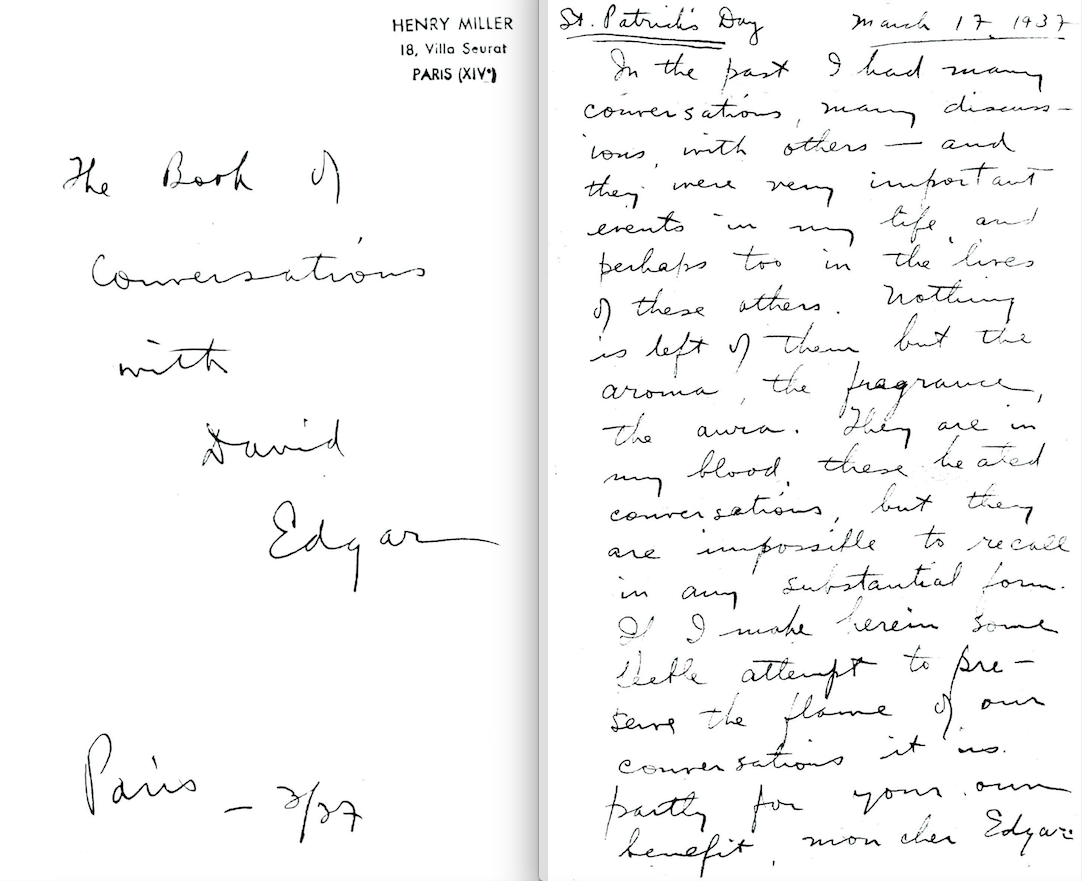 HENRY MILLER
18, Villa Seurat
PARIS (XIVe)
The Book of
Conversations
with
David
Edgar
Paris – 3/37
St. Patrick's Day March 17, 1937
In the past I had many
conversations, many discuss-
ions, with others — and
they were very important
events in my life, and
perhaps too in the lives
of these others. Nothing
is left of them but the
aroma, the fragrance,
the aura. They are in
my blood, these heated
conversations, but they
are impossible to recall
in any substantial form.
If I make herein some
little attempt to pre-
serve the flame of our
conversations it is
partly for your own
benefit, mon cher Edgar